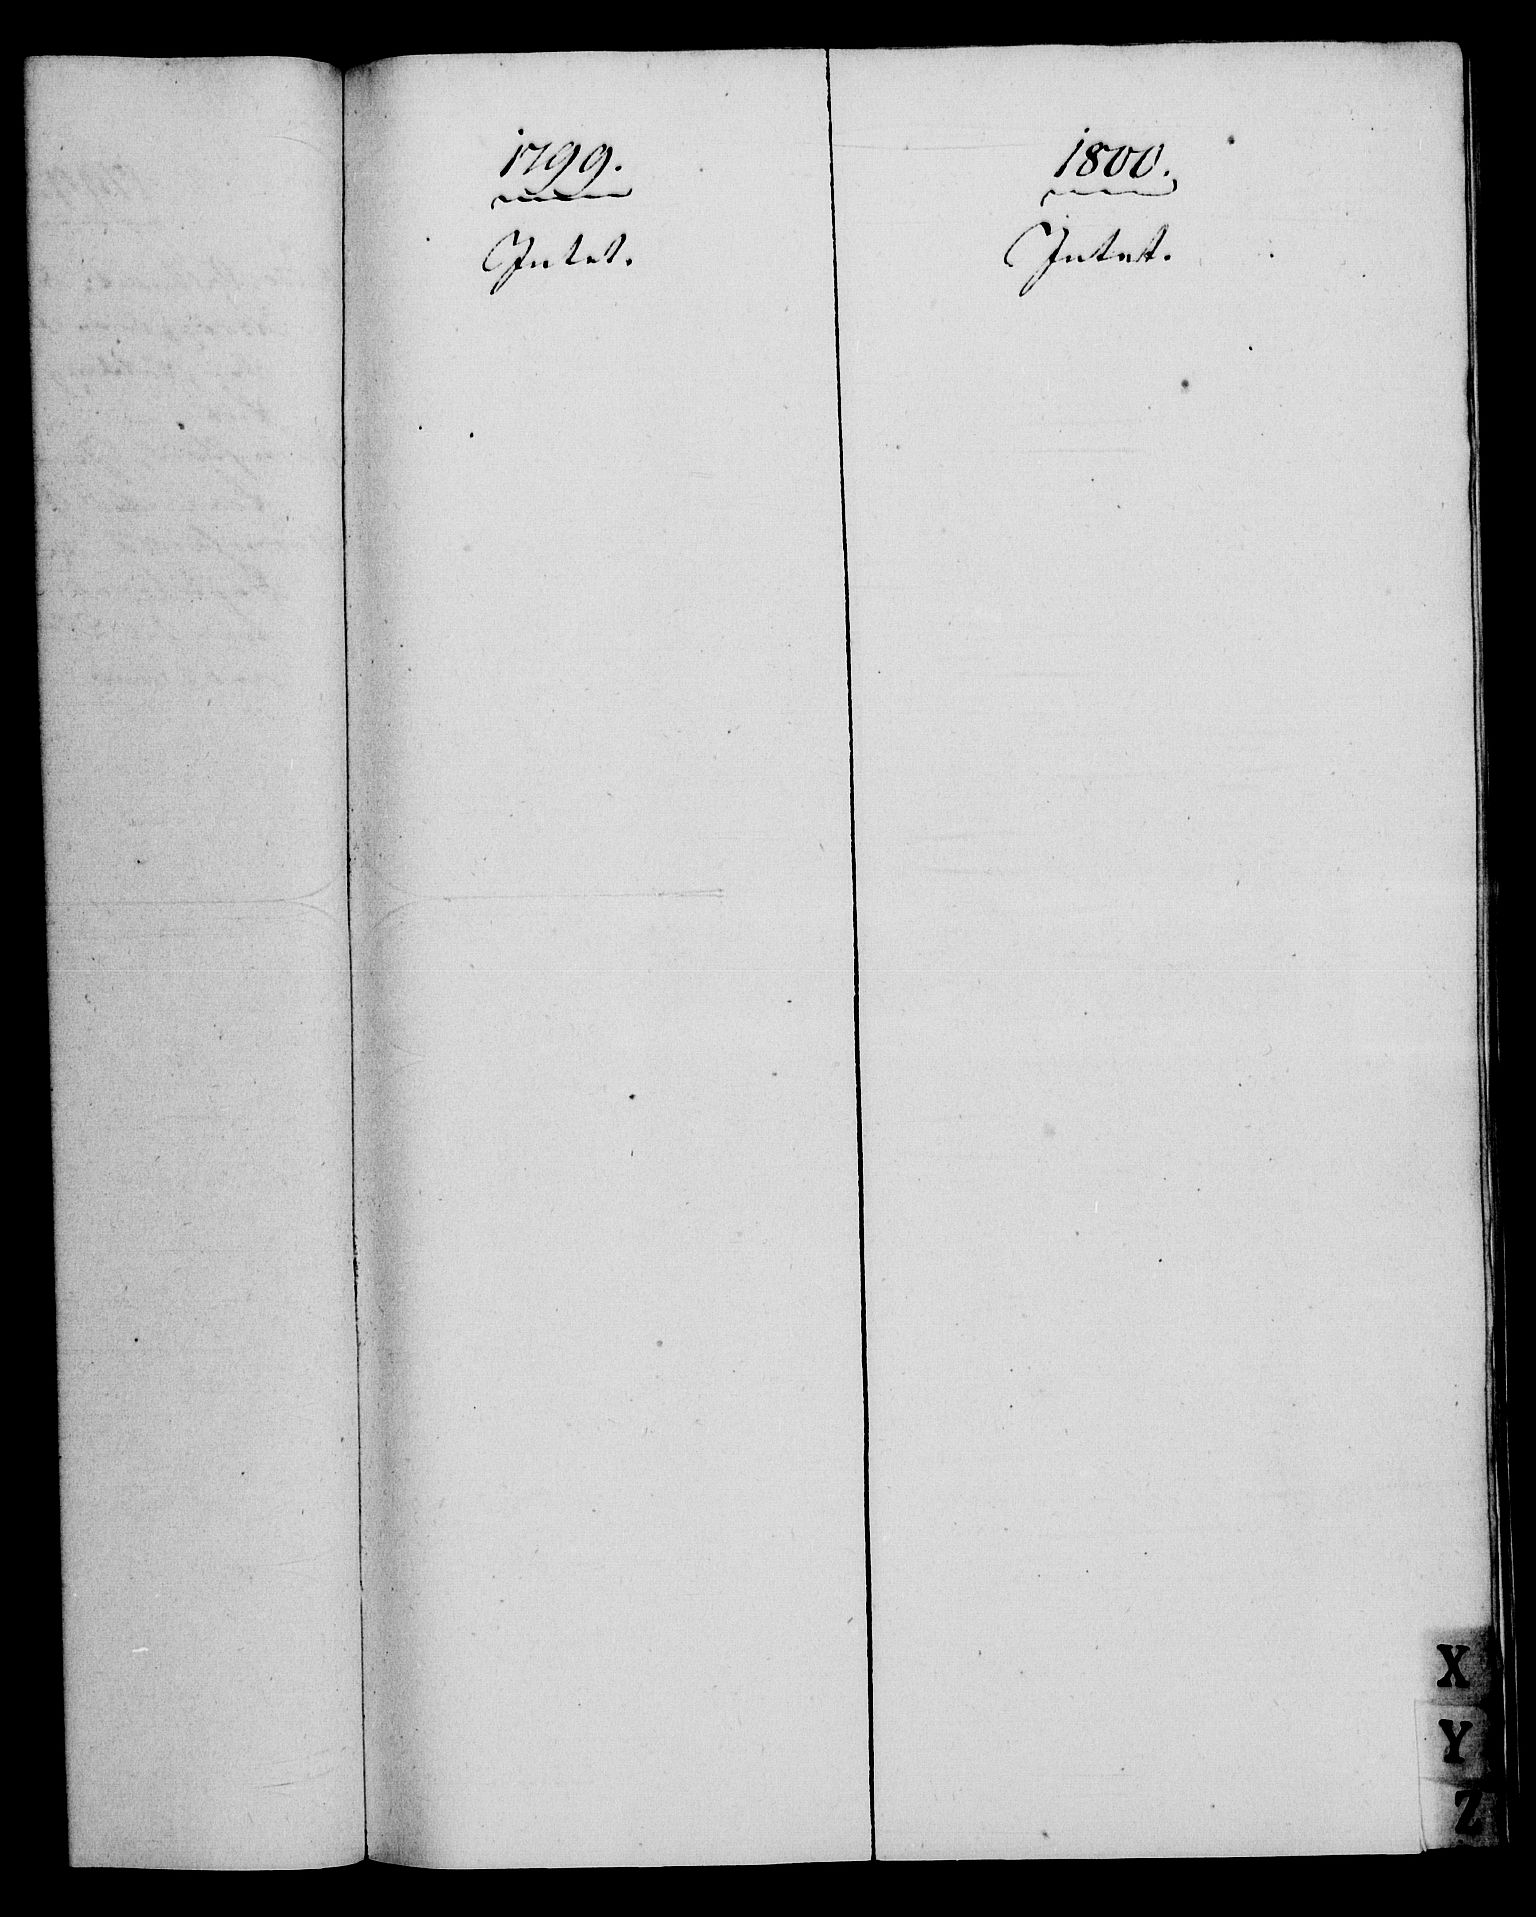 1799.
Intet.
1800.
Intet.
X
Y
Z